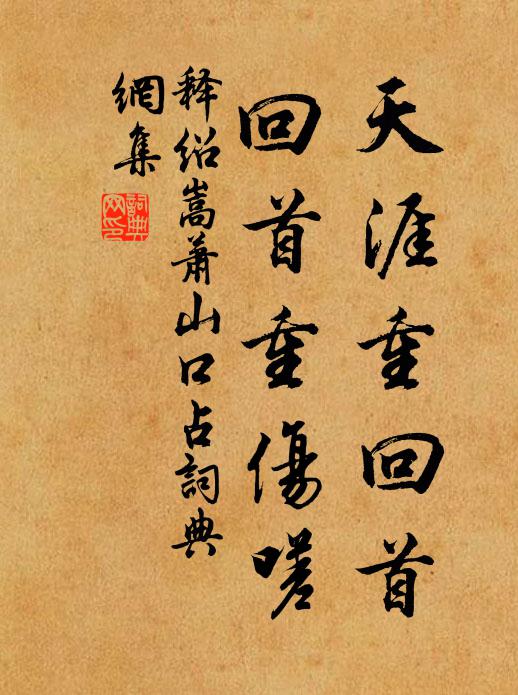 天涯重回首
回首重傷嗟
释绍嵩萧山口占詞典
網集
詞典
网印